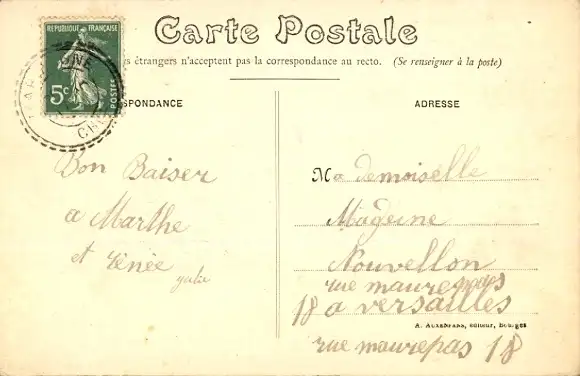 Carte Postale
s étrangers n'acceptent pas la correspondance au recto. (Se renseigner à la poste)
REPUBLIQUE FRANÇAISE
5c
POSTES
SPONDANCE
Bon Baiser
a Marthe
et Rénée
ADRESSE
Mademoiselle
Mageine
Nouvellon
rue maurepas
18 a versailles
A. AUXENFANS, éditeur, Bourges
rue maurepas 18